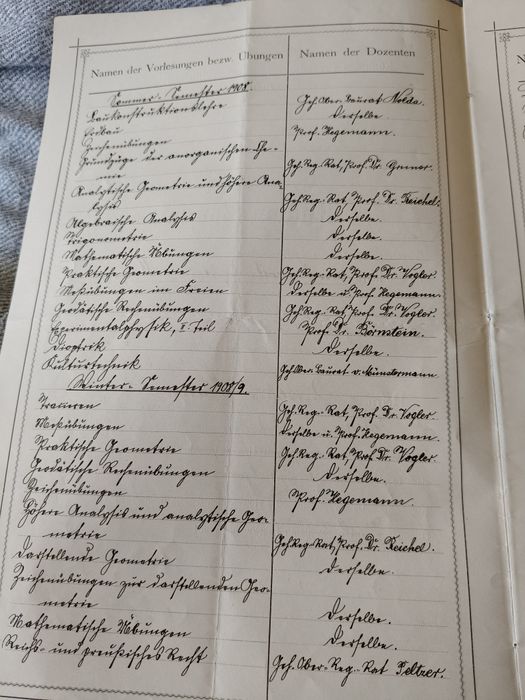 Namen der Vorlesungen bezw. Übungen
Namen der Dozenten
Sommer-Semester 1908.
Baukonstruktionslehre
Geh. Ober-Baurat Nolda.
Erdbau
Derselbe
Zeichenübungen
Prof. Hegemann.
Grundzüge der anorganischen Che-
mie
Geh. Reg. Rat, Prof. Dr.
Analytische Geometrie und höhere Ana-
lysis
Geh. Reg.-Rat, Prof. Dr. Reichel.
Algebraische Analysis
Derselbe.
Trigonometrie
Derselbe.
Mathematische Übungen
Derselbe.
Praktische Geometrie
Geh. Reg.-Rat, Prof. Dr. Vogler.
Meßübungen im Freien
Derselbe u. Prof. Hegemann.
Geodätische Rechenübungen
Geh. Reg.-Rat, Prof. Dr. Vogler.
Experimentalphysik, I Teil
Prof. Dr. Börnstein.
Dioptrik
Derselbe.
Kulturtechnik
Geh. Ober-Baurat v. Münstermann
Winter-Semester 1908/9.
Traciren
Geh. Reg.-Rat, Prof. Dr. Vogler.
Meßübungen
Derselbe u. Prof. Hegemann.
Praktische Geometrie
Geh. Reg.-Rat, Prof. Dr. Vogler.
Geodätische Rechenübungen
Derselbe.
Zeichenübungen
Prof. Hegemann.
Höhere Analysis und analytische Geo-
metrie
Geh. Reg.-Rat, Prof. Dr. Reichel.
Darstellende Geometrie
Derselbe.
Zeichenübungen zur darstellenden Geo-
metrie
Derselbe.
Mathematische Übungen
Derselbe.
Reichs- und preußisches Recht
Geh. Ober-Reg.-Rat Peltzer.